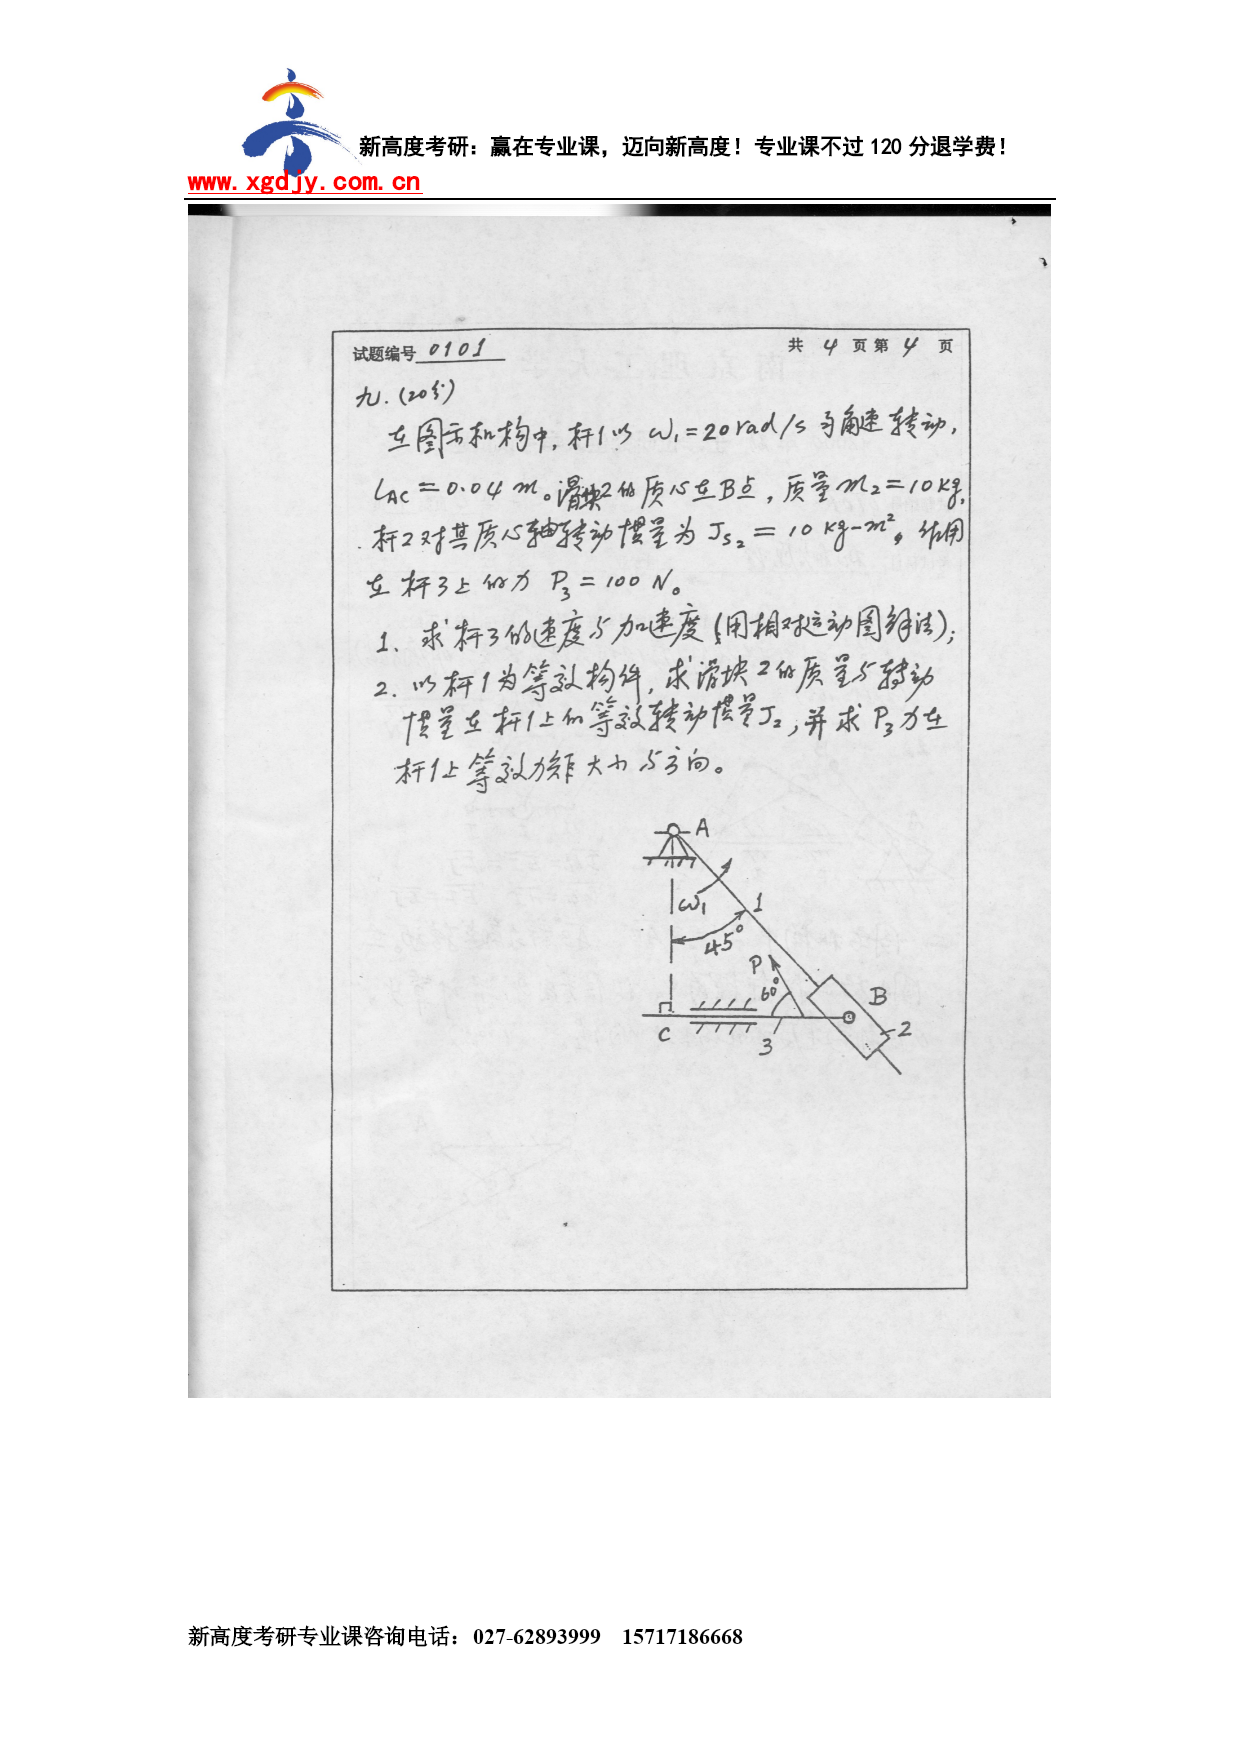 新高度考研：赢在专业课，迈向新高度！专业课不过 120 分退学费！
www.xgdjy.com.cn
试题编号 0101 共 4 页第 4 页
九.(20分)
在图示机构中,杆1以 ω₁=20rad/s 等角速转动,
LAC=0.04 m。滑块2的质心在B点,质量m₂=10kg,
杆2对其质心轴转动惯量为 JS₂=10 kg-m²。作用
在杆3上的力 P₃=100 N。
1、求杆3的速度与加速度(用相对运动图解法);
2. 以杆1为等效构件,求滑块2的质量与转动
惯量在杆1上的等效转动惯量J₂,并求P₃力在
杆1上等效力矩大小与方向。
A
ω₁ 1
45°
P
60° B
C 3 2
新高度考研专业课咨询电话：027-62893999 15717186668